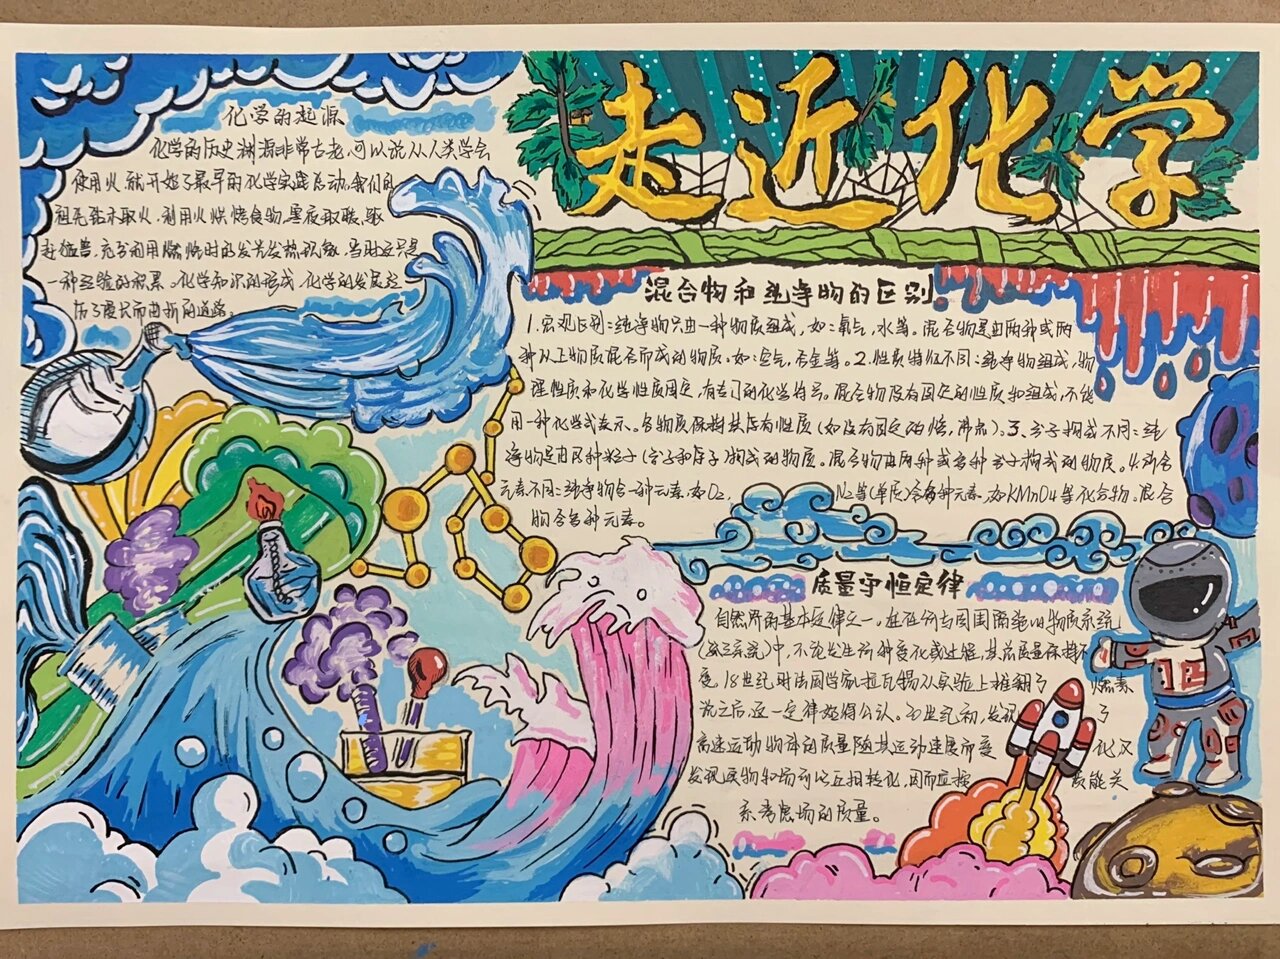 走近化学
化学的起源
化学的历史渊源非常古老,可以说从人类学会
使用火,就开始了最早的化学实践活动。我们的
祖先钻木取火、利用火烘烤食物、寒夜取暖、驱
赶猛兽,充分利用燃烧时的发光发热现象,当时这只是
一种经验的积累。化学知识的形成、化学的发展经
历了漫长而曲折的道路。
混合物和纯净物的区别
1.宏观区别:纯净物只由一种物质组成,如:氧气,水等。混合物是由两种或两
种以上物质混合而成的物质。如:空气,合金等。2.性质特征不同:纯净物组成,物
理性质和化学性质固定,有专门的化学符号。混合物没有固定的性质和组成,不能
用一种化学式表示。各物质保持其原有性质(如没有固定的熔,沸点)。3、分子构成不同:纯
净物是由同种粒子(分子和原子)构成的物质。混合物由两种或多种分子构成的物质。4.所含
元素不同:纯净物含一种元素,如O2, N2等(单质)含多种元素,如KMnO4等化合物,混合
物含多种元素。
质量守恒定律
自然界的基本定律之一。在任何与周围隔绝的物质系统
(孤立系统)中,不论发生何种变化或过程,其总质量保持不
变。18世纪时法国学家拉瓦锡从实验上推翻了 燃素
说之后,这一定律始得公认。20世纪初,发现 了
高速运动物体的质量随其运动速度而变 化又
发现实物和场可以互相转化,因而应按 质能关
系考虑场的质量。